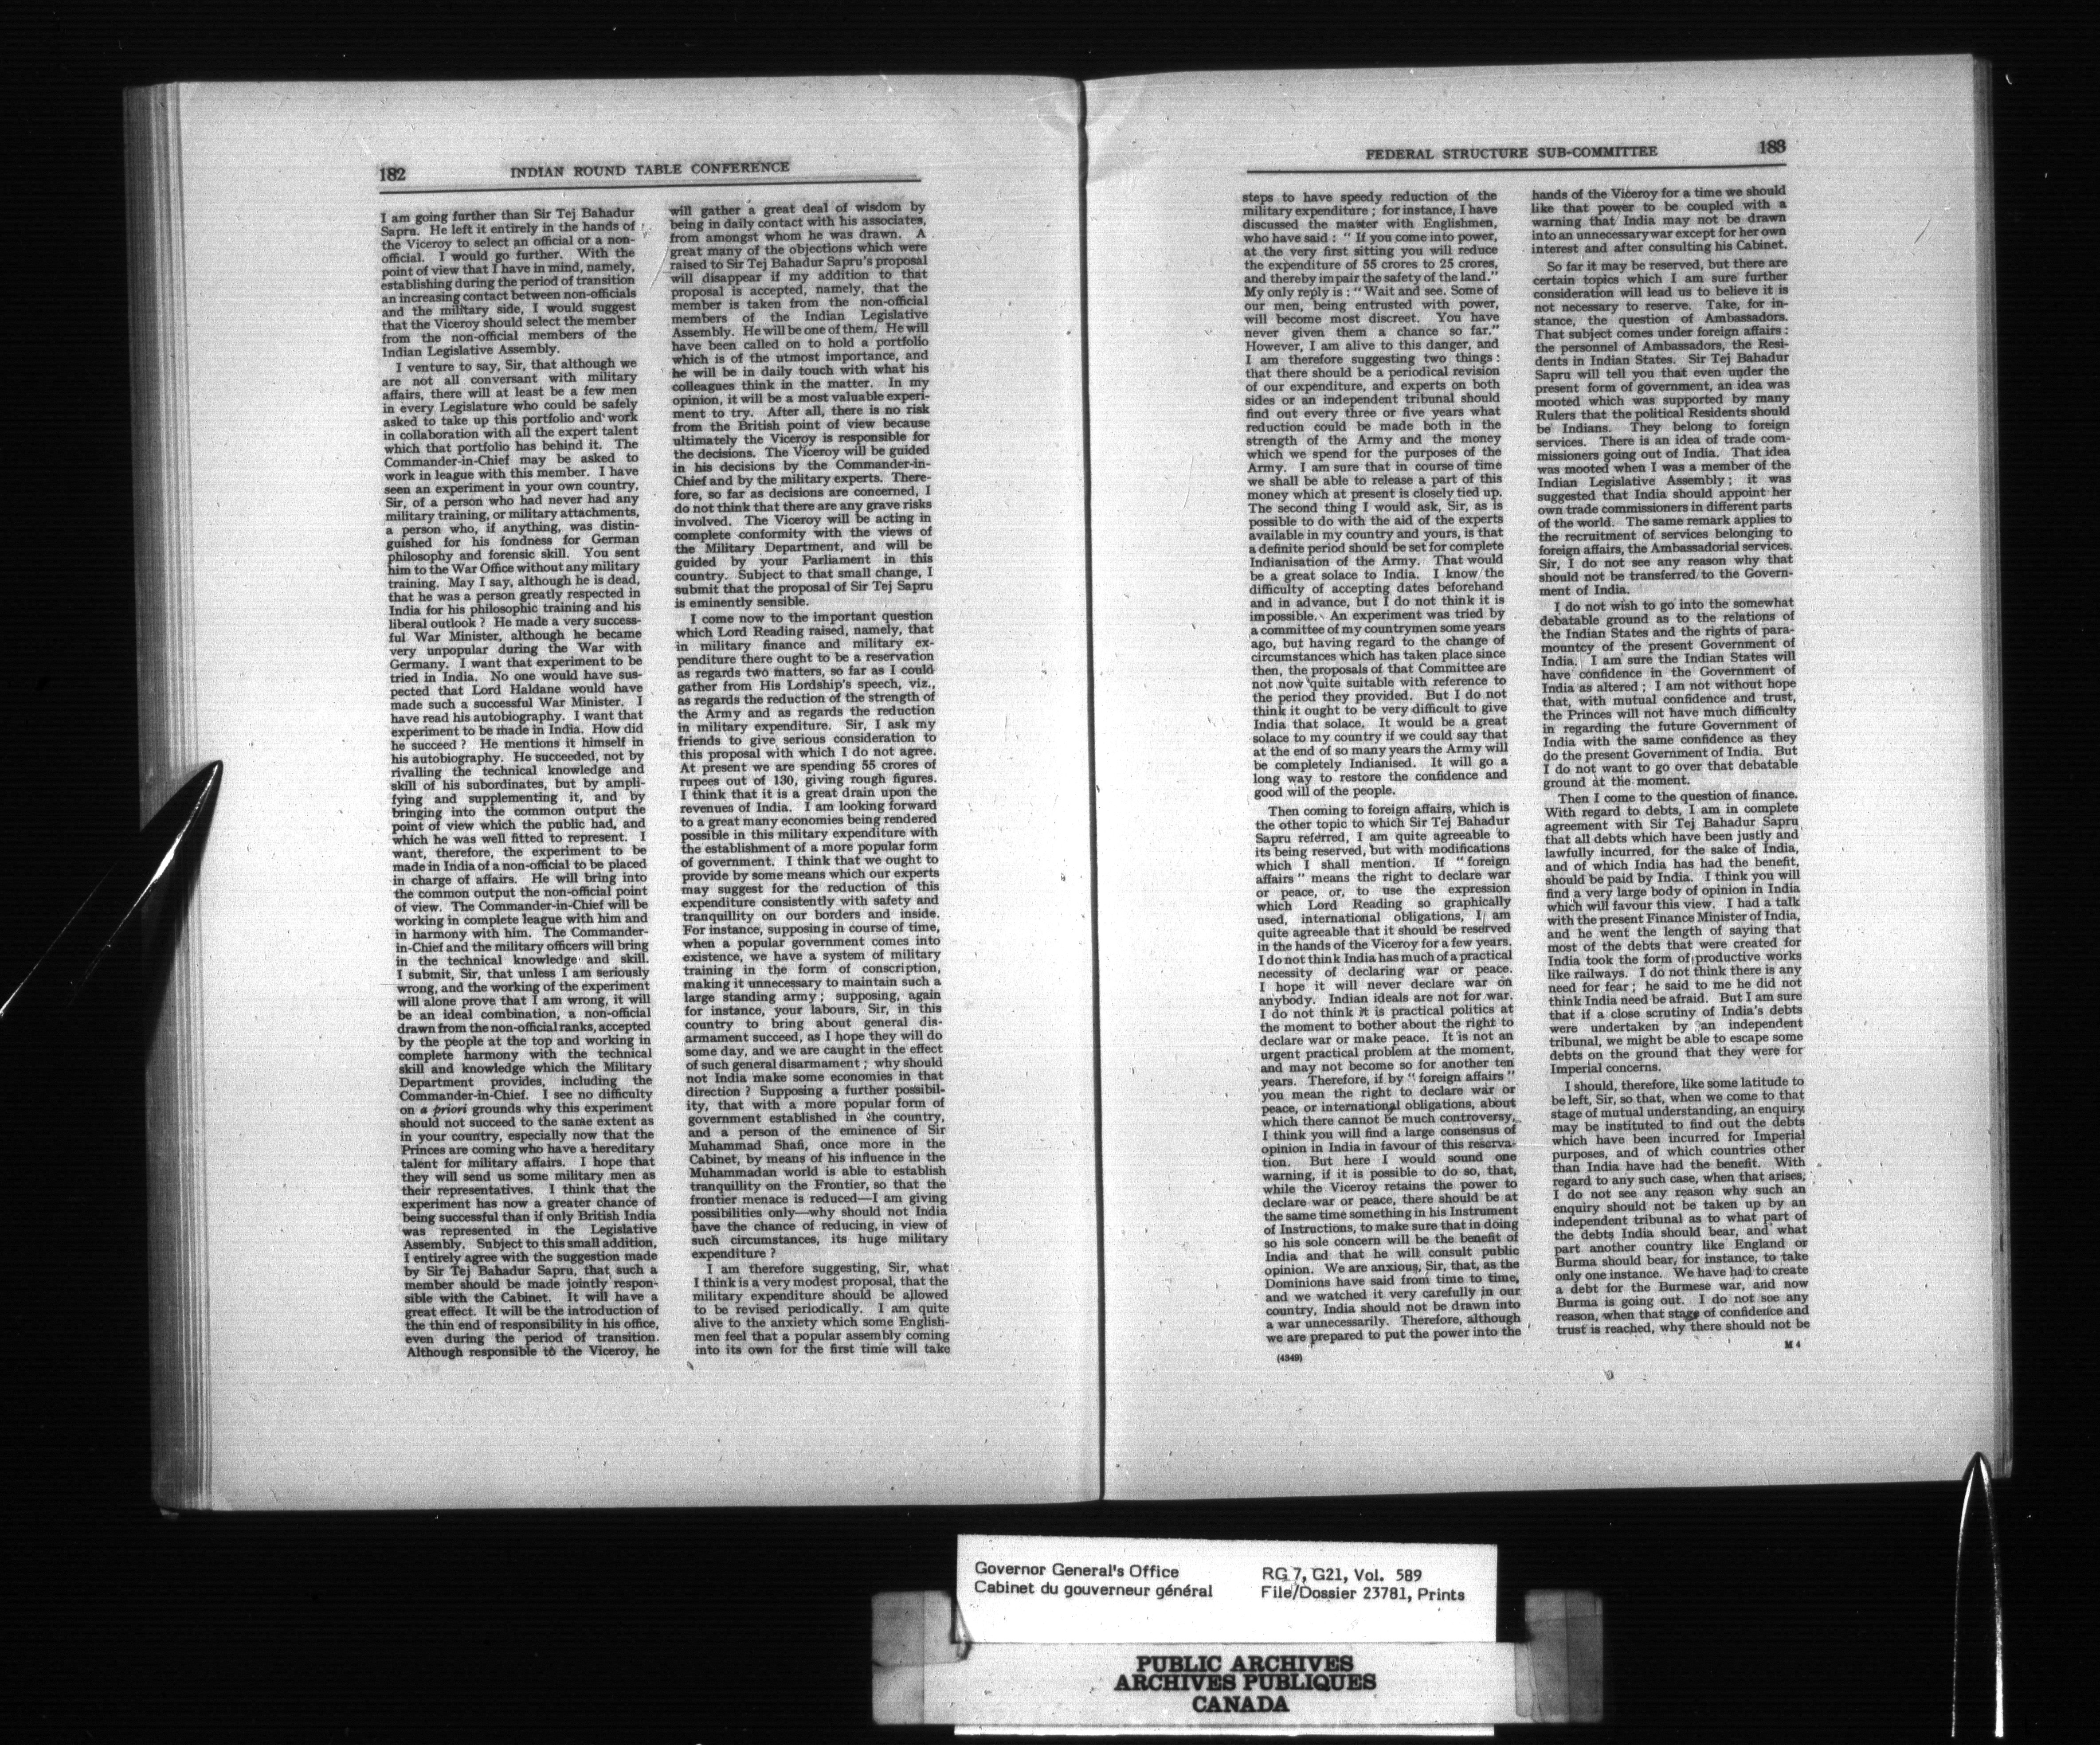 182
INDIAN ROUND TABLE CONFERENCE
I am going further than Sir Tej Bahadur
Sapru. He left it entirely in the hands of
the Viceroy to select an official or a non-
official. I would go further. With the
point of view that I have in mind, namely,
establishing during the period of transition
an increasing contact between non-officials
and the military side, I would suggest
that the Viceroy should select the member
from the non-official members of the
Indian Legislative Assembly.
I venture to say, Sir, that although we
are not all conversant with military
affairs, there will at least be a few men
in every Legislature who could be safely
asked to take up this portfolio and work
in collaboration with all the expert talent
which that portfolio has behind it. The
Commander-in-Chief may be asked to
work in league with this member. I have
seen an experiment in your own country,
Sir, of a person who had never had any
military training, or military attachments,
a person who, if anything, was distin-
guished for his fondness for German
philosophy and forensic skill. You sent
him to the War Office without any military
training. May I say, although he is dead,
that he was a person greatly respected in
India for his philosophic training and his
liberal outlook ? He made a very success-
ful War Minister, although he became
very unpopular during the War with
Germany. I want that experiment to be
tried in India. No one would have sus-
pected that Lord Haldane would have
made such a successful War Minister. I
have read his autobiography. I want that
experiment to be made in India. How did
he succeed ? He mentions it himself in
his autobiography. He succeeded, not by
rivalling the technical knowledge and
skill of his subordinates, but by ampli-
fying and supplementing it, and by
bringing into the common output the
point of view which the public had, and
which he was well fitted to represent. I
want, therefore, the experiment to be
made in India of a non-official to be placed
in charge of affairs. He will bring into
the common output the non-official point
of view. The Commander-in-Chief will be
working in complete league with him and
in harmony with him. The Commander-
in-Chief and the military officers will bring
in the technical knowledge and skill.
I submit, Sir, that unless I am seriously
wrong, and the working of the experiment
will alone prove that I am wrong, it will
be an ideal combination, a non-official
drawn from the non-official ranks, accepted
by the people at the top and working in
complete harmony with the technical
skill and knowledge which the Military
Department provides, including the
Commander-in-Chief. I see no difficulty
on a priori grounds why this experiment
should not succeed to the same extent as
in your country, especially now that the
Princes are coming who have a hereditary
talent for military affairs. I hope that
they will send us some military men as
their representatives. I think that the
experiment has now a greater chance of
being successful than if only British India
was represented in the Legislative
Assembly. Subject to this small addition,
I entirely agree with the suggestion made
by Sir Tej Bahadur Sapru, that such a
member should be made jointly respon-
sible with the Cabinet. It will have a
great effect. It will be the introduction of
the thin end of responsibility in his office,
even during the period of transition.
Although responsible to the Viceroy, he
will gather a great deal of wisdom by
being in daily contact with his associates,
from amongst whom he was drawn. A
great many of the objections which were
raised to Sir Tej Bahadur Sapru's proposal
will disappear if my addition to that
proposal is accepted, namely, that the
member is taken from the non-official
members of the Indian Legislative
Assembly. He will be one of them. He will
have been called on to hold a portfolio
which is of the utmost importance, and
he will be in daily touch with what his
colleagues think in the matter. In my
opinion, it will be a most valuable experi-
ment to try. After all, there is no risk
from the British point of view because
ultimately the Viceroy is responsible for
the decisions. The Viceroy will be guided
in his decisions by the Commander-in-
Chief and by the military experts. There-
fore, so far as decisions are concerned, I
do not think that there are any grave risks
involved. The Viceroy will be acting in
complete conformity with the views of
the Military Department, and will be
guided by your Parliament in this
country. Subject to that small change, I
submit that the proposal of Sir Tej Sapru
is eminently sensible.
I come now to the important question
which Lord Reading raised, namely, that
in military finance and military ex-
penditure there ought to be a reservation
as regards two matters, so far as I could
gather from His Lordship's speech, viz.,
as regards the reduction of the strength of
the Army and as regards the reduction
in military expenditure. Sir, I ask my
friends to give serious consideration to
this proposal with which I do not agree.
At present we are spending 55 crores of
rupees out of 130, giving rough figures.
I think that it is a great drain upon the
revenues of India. I am looking forward
to a great many economies being rendered
possible in this military expenditure with
the establishment of a more popular form
of government. I think that we ought to
provide by some means which our experts
may suggest for the reduction of this
expenditure consistently with safety and
tranquillity on our borders and inside.
For instance, supposing in course of time,
when a popular government comes into
existence, we have a system of military
training in the form of conscription,
making it unnecessary to maintain such a
large standing army ; supposing, again
for instance, your labours, Sir, in this
country to bring about general dis-
armament succeed, as I hope they will do
some day, and we are caught in the effect
of such general disarmament ; why should
not India make some economies in that
direction ? Supposing a further possibil-
ity, that with a more popular form of
government established in the country,
and a person of the eminence of Sir
Muhammad Shafi, once more in the
Cabinet, by means of his influence in the
Muhammadan world is able to establish
tranquillity on the Frontier, so that the
frontier menace is reduced—I am giving
possibilities only—why should not India
have the chance of reducing, in view of
such circumstances, its huge military
expenditure ?
I am therefore suggesting, Sir, what
I think is a very modest proposal, that the
military expenditure should be allowed
to be revised periodically. I am quite
alive to the anxiety which some English-
men feel that a popular assembly coming
into its own for the first time will take
FEDERAL STRUCTURE SUB-COMMITTEE
183
steps to have speedy reduction of the
military expenditure ; for instance, I have
discussed the master with Englishmen,
who have said : " If you come into power,
at the very first sitting you will reduce
the expenditure of 55 crores to 25 crores,
and thereby impair the safety of the land."
My only reply is : " Wait and see. Some of
our men, being entrusted with power,
will become most discreet. You have
never given them a chance so far."
However, I am alive to this danger, and
I am therefore suggesting two things :
that there should be a periodical revision
of our expenditure, and experts on both
sides or an independent tribunal should
find out every three or five years what
reduction could be made both in the
strength of the Army and the money
which we spend for the purposes of the
Army. I am sure that in course of time
we shall be able to release a part of this
money which at present is closely tied up.
The second thing I would ask, Sir, as is
possible to do with the aid of the experts
available in my country and yours, is that
a definite period should be set for complete
Indianisation of the Army. That would
be a great solace to India. I know the
difficulty of accepting dates beforehand
and in advance, but I do not think it is
impossible. An experiment was tried by
a committee of my countrymen some years
ago, but having regard to the change of
circumstances which has taken place since
then, the proposals of that Committee are
not now quite suitable with reference to
the period they provided. But I do not
think it ought to be very difficult to give
India that solace. It would be a great
solace to my country if we could say that
at the end of so many years the Army will
be completely Indianised. It will go a
long way to restore the confidence and
good will of the people.
Then coming to foreign affairs, which is
the other topic to which Sir Tej Bahadur
Sapru referred, I am quite agreeable to
its being reserved, but with modifications
which I shall mention. If " foreign
affairs " means the right to declare war
or peace, or, to use the expression
which Lord Reading so graphically
used, international obligations, I am
quite agreeable that it should be reserved
in the hands of the Viceroy for a few years.
I do not think India has much of a practical
necessity of declaring war or peace.
I hope it will never declare war on
anybody. Indian ideals are not for war.
I do not think it is practical politics at
the moment to bother about the right to
declare war or make peace. It is not an
urgent practical problem at the moment,
and may not become so for another ten
years. Therefore, if by " foreign affairs "
you mean the right to declare war or
peace, or international obligations, about
which there cannot be much controversy,
I think you will find a large consensus of
opinion in India in favour of this reserva-
tion. But here I would sound one
warning, if it is possible to do so, that,
while the Viceroy retains the power to
declare war or peace, there should be at
the same time something in his Instrument
of Instructions, to make sure that in doing
so his sole concern will be the benefit of
India and that he will consult public
opinion. We are anxious, Sir, that, as the
Dominions have said from time to time,
and we watched it very carefully in our
country, India should not be drawn into
a war unnecessarily. Therefore, although
we are prepared to put the power into the
(4349)
hands of the Viceroy for a time we should
like that power to be coupled with a
warning that India may not be drawn
into an unnecessary war except for her own
interest and after consulting his Cabinet.
So far it may be reserved, but there are
certain topics which I am sure further
consideration will lead us to believe it is
not necessary to reserve. Take, for in-
stance, the question of Ambassadors.
That subject comes under foreign affairs :
the personnel of Ambassadors, the Resi-
dents in Indian States. Sir Tej Bahadur
Sapru will tell you that even under the
present form of government, an idea was
mooted which was supported by many
Rulers that the political Residents should
be Indians. They belong to foreign
services. There is an idea of trade com-
missioners going out of India. That idea
was mooted when I was a member of the
Indian Legislative Assembly ; it was
suggested that India should appoint her
own trade commissioners in different parts
of the world. The same remark applies to
the recruitment of services belonging to
foreign affairs, the Ambassadorial services.
Sir, I do not see any reason why that
should not be transferred to the Govern-
ment of India.
I do not wish to go into the somewhat
debatable ground as to the relations of
the Indian States and the rights of para-
mountcy of the present Government of
India. I am sure the Indian States will
have confidence in the Government of
India as altered ; I am not without hope
that, with mutual confidence and trust,
the Princes will not have much difficulty
in regarding the future Government of
India with the same confidence as they
do the present Government of India. But
I do not want to go over that debatable
ground at the moment.
Then I come to the question of finance.
With regard to debts, I am in complete
agreement with Sir Tej Bahadur Sapru
that all debts which have been justly and
lawfully incurred, for the sake of India,
and of which India has had the benefit,
should be paid by India. I think you will
find a very large body of opinion in India
which will favour this view. I had a talk
with the present Finance Minister of India,
and he went the length of saying that
most of the debts that were created for
India took the form of productive works
like railways. I do not think there is any
need for fear ; he said to me he did not
think India need be afraid. But I am sure
that if a close scrutiny of India's debts
were undertaken by an independent
tribunal, we might be able to escape some
debts on the ground that they were for
Imperial concerns.
I should, therefore, like some latitude to
be left, Sir, so that, when we come to that
stage of mutual understanding, an enquiry
may be instituted to find out the debts
which have been incurred for Imperial
purposes, and of which countries other
than India have had the benefit. With
regard to any such case, when that arises,
I do not see any reason why such an
enquiry should not be taken up by an
independent tribunal as to what part of
the debts India should bear, and what
part another country like England or
Burma should bear, for instance, to take
only one instance. We have had to create
a debt for the Burmese war, and now
Burma is going out. I do not see any
reason, when that stage of confidence and
trust is reached, why there should not be
M 4
Governor General's Office
Cabinet du gouverneur général
RG 7, G21, Vol. 589
File/Dossier 23781, Prints
PUBLIC ARCHIVES
ARCHIVES PUBLIQUES
CANADA